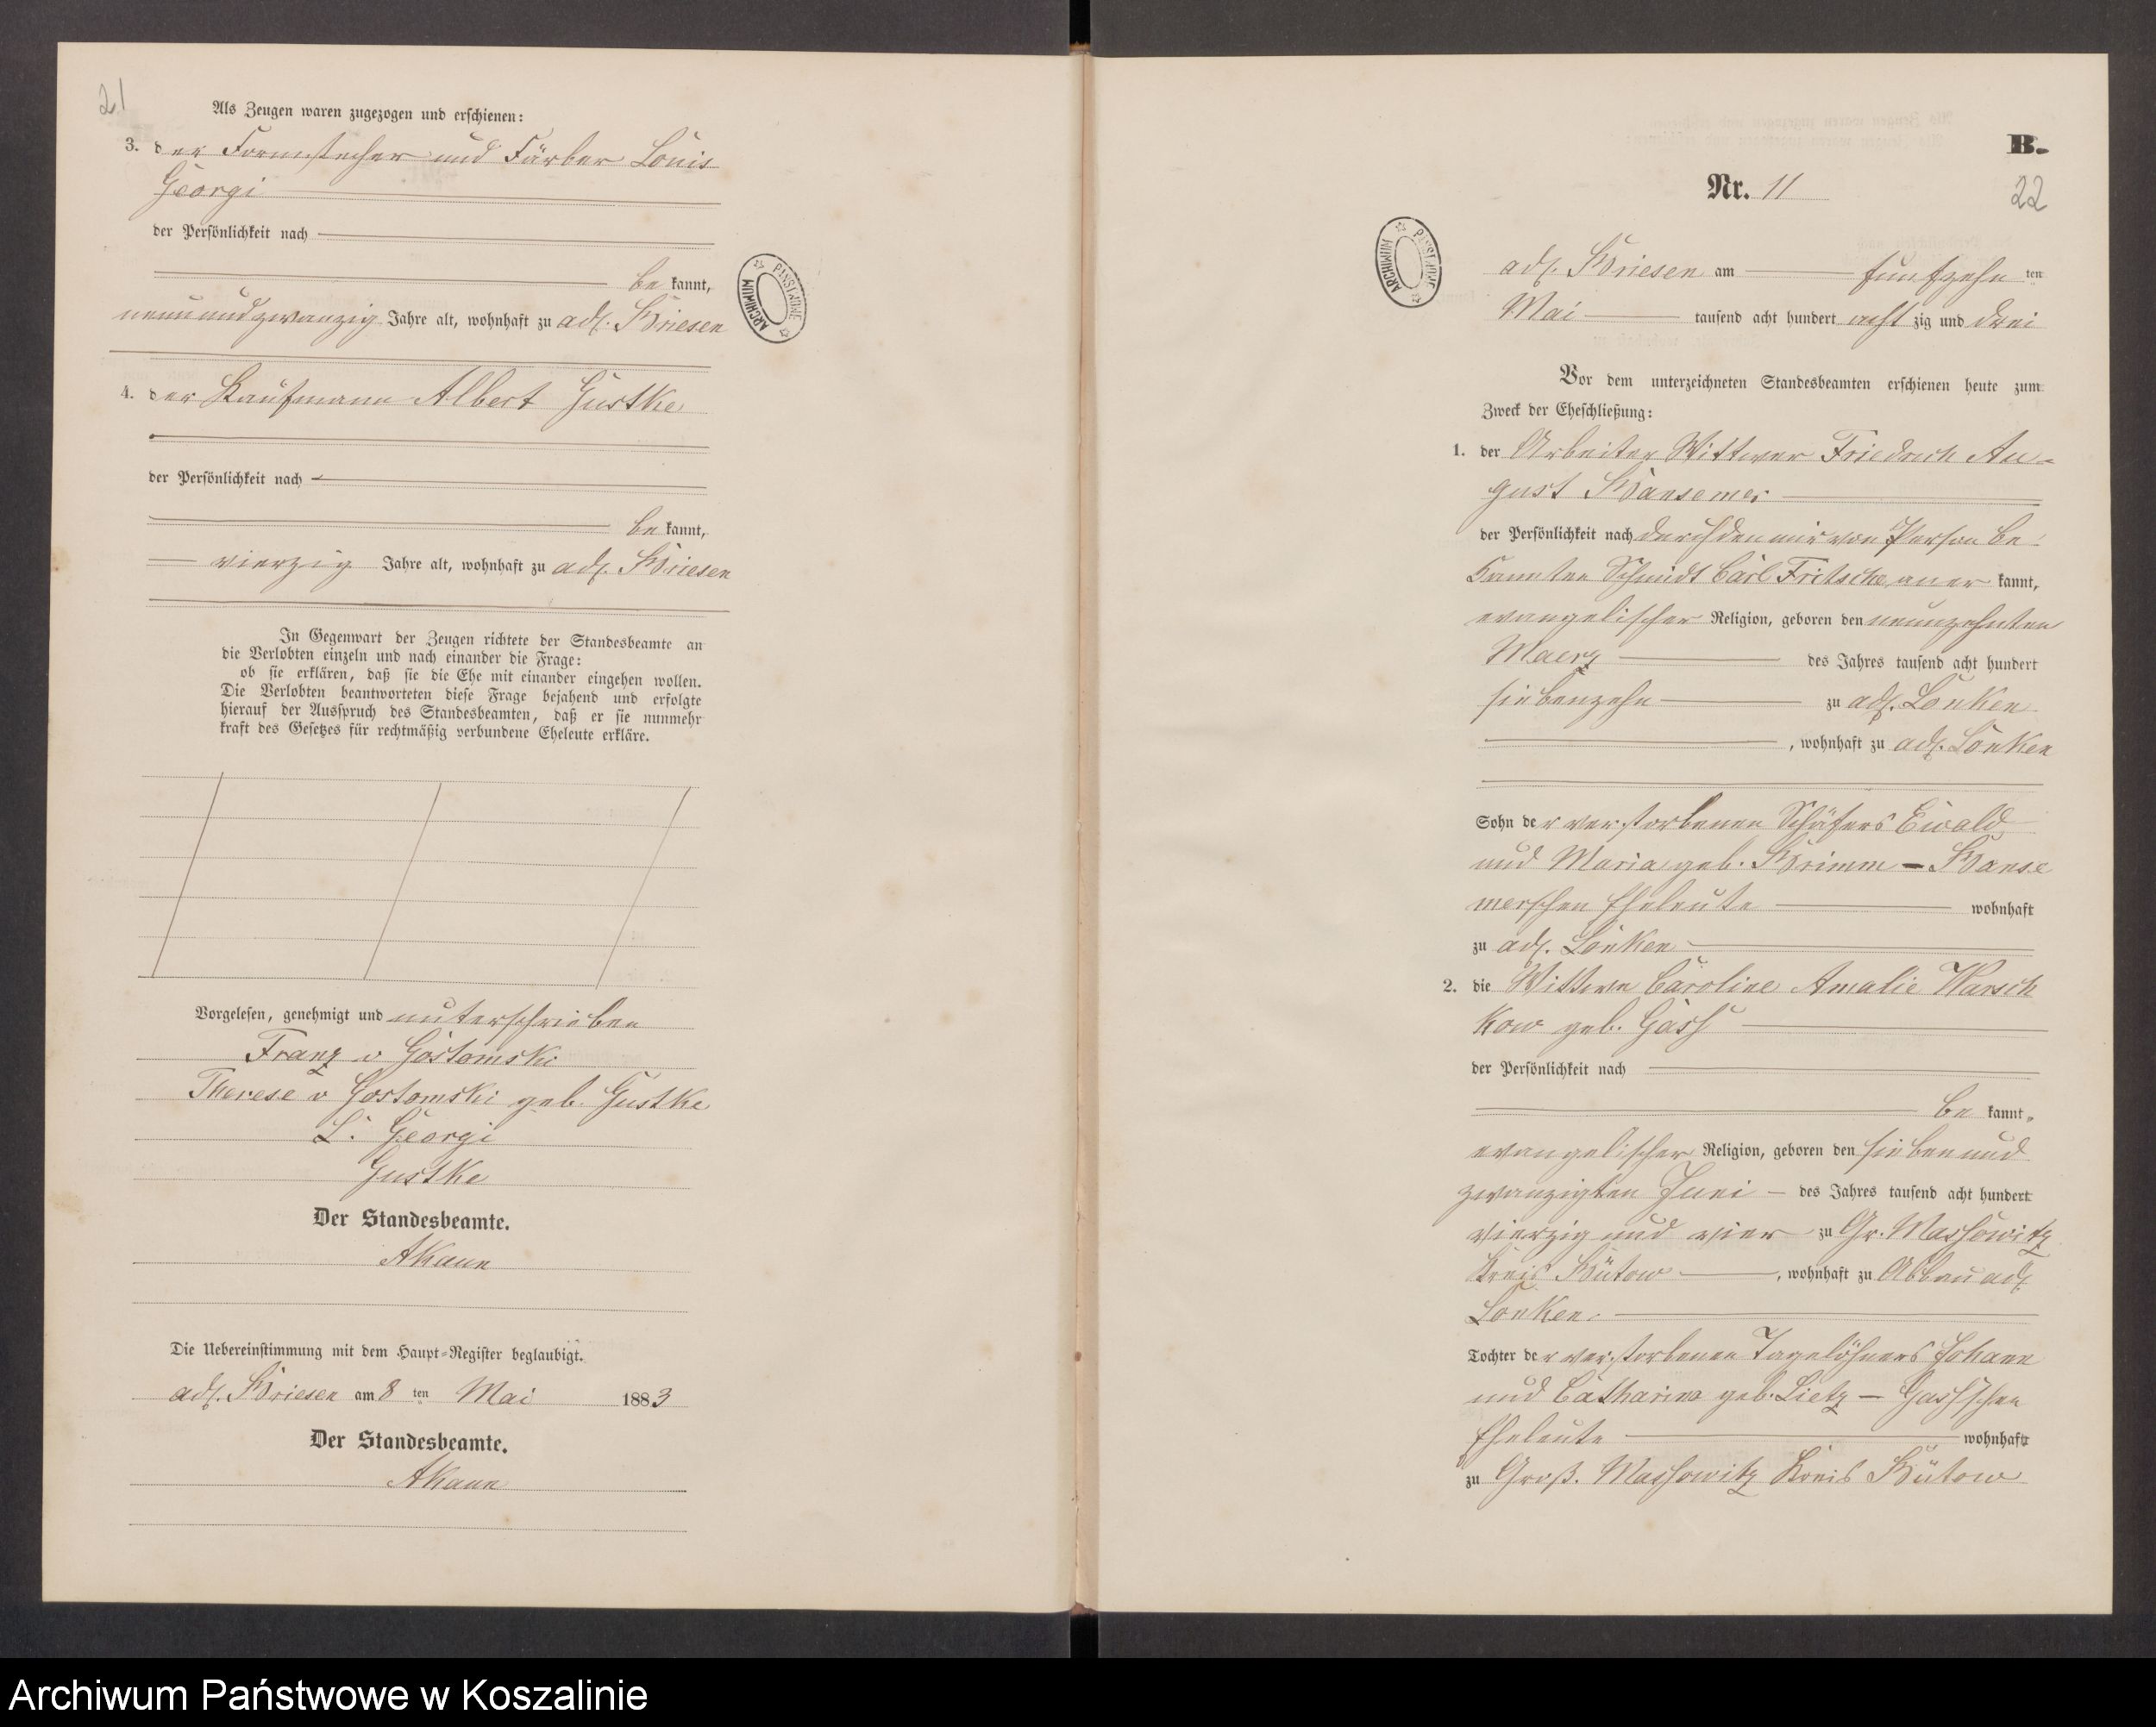 21
Als Zeugen waren zugezogen und erschienen:
3. der Formstecher und Färber Louis
Georgi
der Persönlichkeit nach
be kannt,
neunundzwanzig Jahre alt, wohnhaft zu adl. Briesen
4. der Kaufmann Albert Gustke
der Persönlichkeit nach
be kannt,
vierzig Jahre alt, wohnhaft zu adl. Briesen
In Gegenwart der Zeugen richtete der Standesbeamte an
die Verlobten einzeln und nach einander die Frage:
ob sie erklären, daß sie die Ehe mit einander eingehen wollen.
Die Verlobten beantworteten diese Frage bejahend und erfolgte
hierauf der Ausspruch des Standesbeamten, daß er sie nunmehr
kraft des Gesetzes für rechtmäßig verbundene Eheleute erkläre.
Vorgelesen, genehmigt und unterschrieben
Franz v Gostomski
Therese v Gostomski geb. Gustke
L. Georgi
Gustke
Der Standesbeamte.
AKaun
Die Uebereinstimmung mit dem Haupt-Register beglaubigt.
adl. Briesen am 8 ten Mai 1883
Der Standesbeamte.
AKaun
ARCHIWUM PAŃSTWOWE
B.
Nr. 11
22
ARCHIWUM PAŃSTWOWE
adl. Briesen am funfzehn ten
Mai tausend acht hundert acht zig und drei
Vor dem unterzeichneten Standesbeamten erschienen heute zum
Zweck der Eheschließung:
1. der Arbeiter Wittwer Friedrich Au-
gust Bansemer
der Persönlichkeit nach durch den mir von Person be-
kannten Schmidt Carl Fritsche aner kannt,
evangelischer Religion, geboren den neunzehnten
Maerz des Jahres tausend acht hundert
siebenzehn zu adl. Lonken
, wohnhaft zu adl. Lonken
Sohn der verstorbenen Schäfers Ewald
und Maria geb. Brimm - Banse
merschen Eheleute wohnhaft
zu adl. Lonken
2. die Wittwe Caroline Amalie Warsch
kow geb. Gass
der Persönlichkeit nach
be kannt,
evangelischer Religion, geboren den sieben und
zwanzigsten Juni - des Jahres tausend acht hundert
vierzig und vier zu Gr. Massowitz
Kreis Bütow , wohnhaft zu Abbau adl.
Lonken.
Tochter der verstorbenen Tagelöhners Johann
und Catharina geb. Lietz - Gass'schen
Eheleute wohnhaft
zu Groß. Massowitz Kreis Bütow
Archiwum Państwowe w Koszalinie